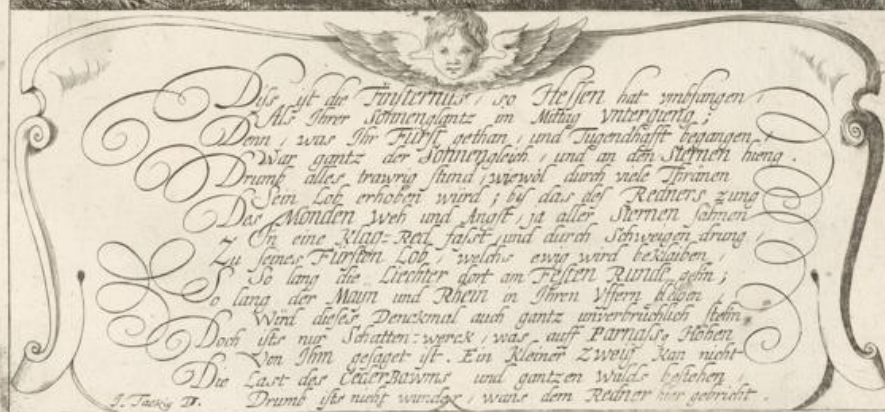 Diss ist die Finsternüs, so Hessen hat umbfangen,
Als Ihrer Sonnenglantz im Mittag untergieng;
Denn, was Ihr Fürst gethan, und Tugendhafft begangen,
War gantz der Sonnen gleich, und an den Sternen hieng.
Drumb alles trawrig stund, wiewol durch viele Thränen
Sein Lob erhoben würd; bis das des Redners zung
Des Monden Weh und Angst, ja aller Sternen
In eine Klag-Red fasst, und durch Schweigen drung,
Zu seines Fürsten Lob, welchs ewig wird bekleiben,
So lang die Liechter dort am Festen Runde gehn;
So lang der Mayn und Rhein in Ihren Uffern
Wird dieses Denckmal auch gantz unverbrüchlich stehn.
Doch ists nur Schatten-werck, was auff Parnass, Höhen
Von Ihm gesaget ist. Ein Kleiner Zweig kan nicht
Die Last des CederBawms und gantzen Walds bestehen,
Drumb ists nicht wunder, wans dem Redner hier gebricht.